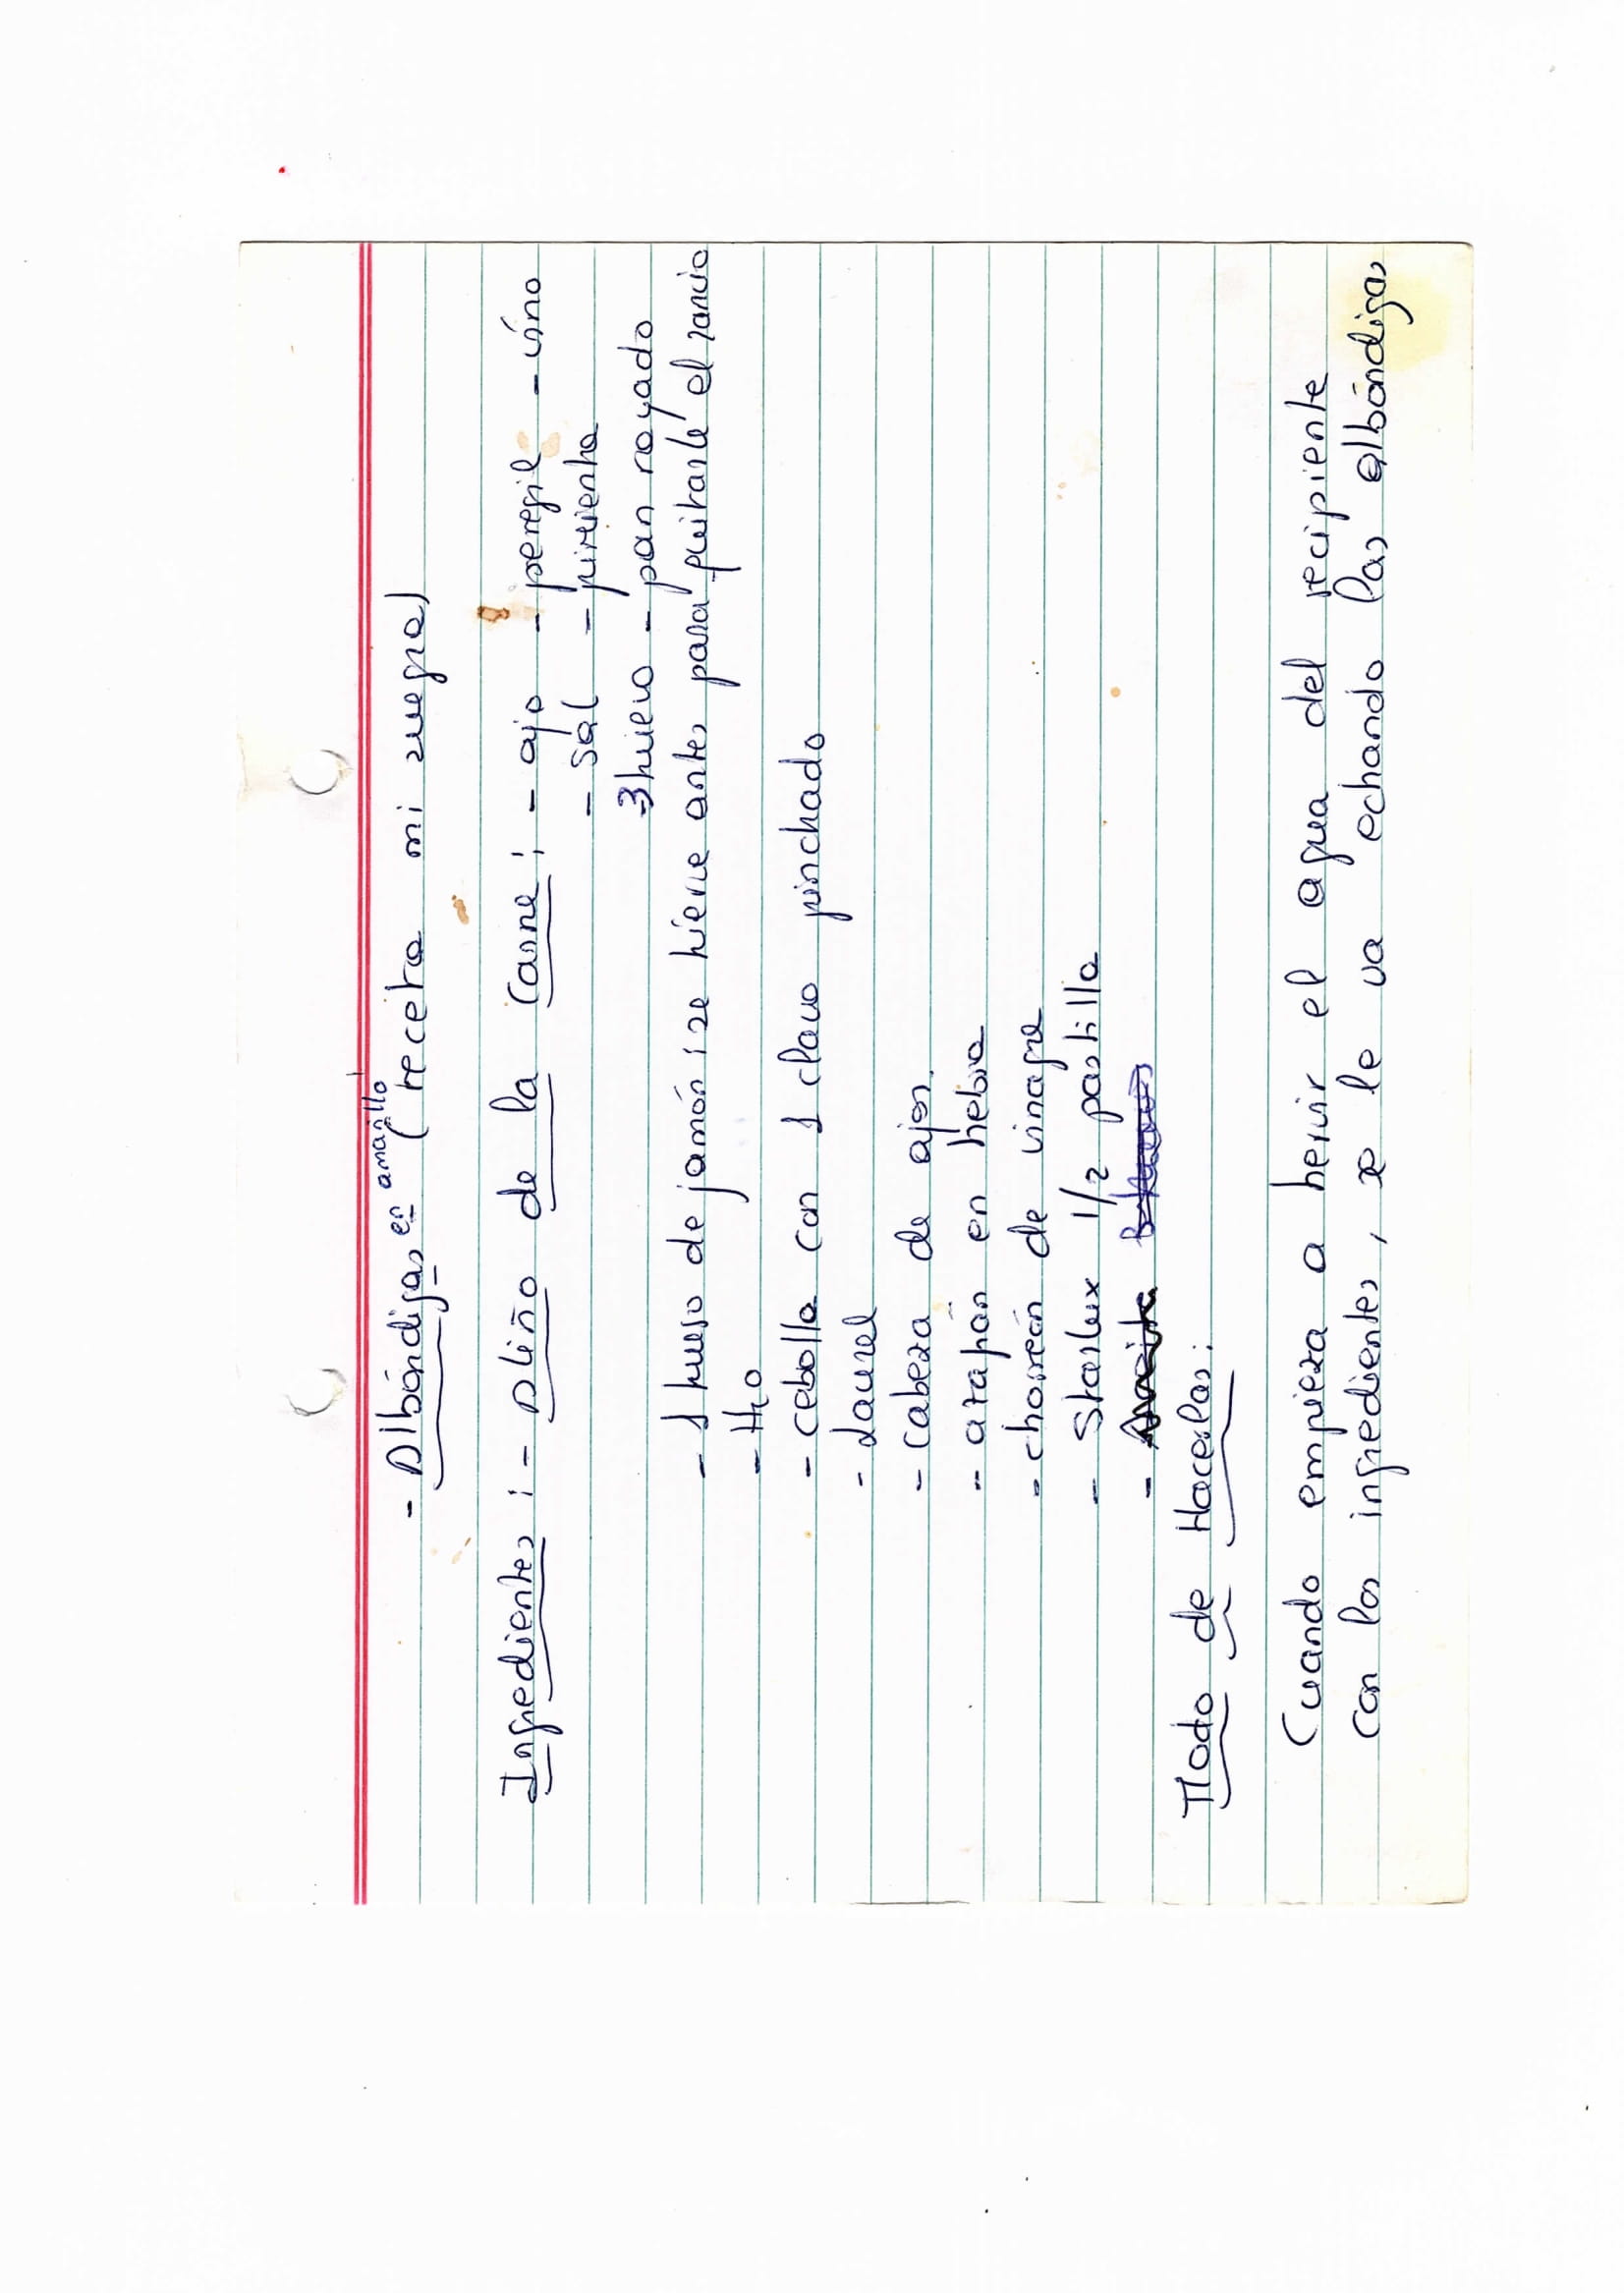 - Albóndigas en amarillo (receta mi suegra)
Ingredientes : - Aliño de la carne : - ajo - peregil - vino
- sal - pimienta
- 3 huevo - pan rayado
- 1 hueso de jamón : se hierve antes para quitarle el rancio
- H2O
- cebolla con 1 clavo pinchado
- Laurel
- Cabeza de ajos.
- azafrán en hebra
- chorreón de vinagre
- Starlux 1/2 pastilla
-
Modo de Hacerlas :
Cuando empieza a hervir el agua del recipiente
con los ingredientes, se le va echando las albóndigas